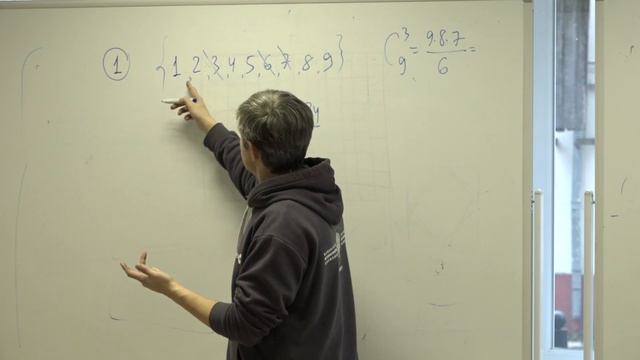 ① {1, 2, 3, 4, 5, 6, 7, 8, 9} C₉³ = 9·8·7/6 =